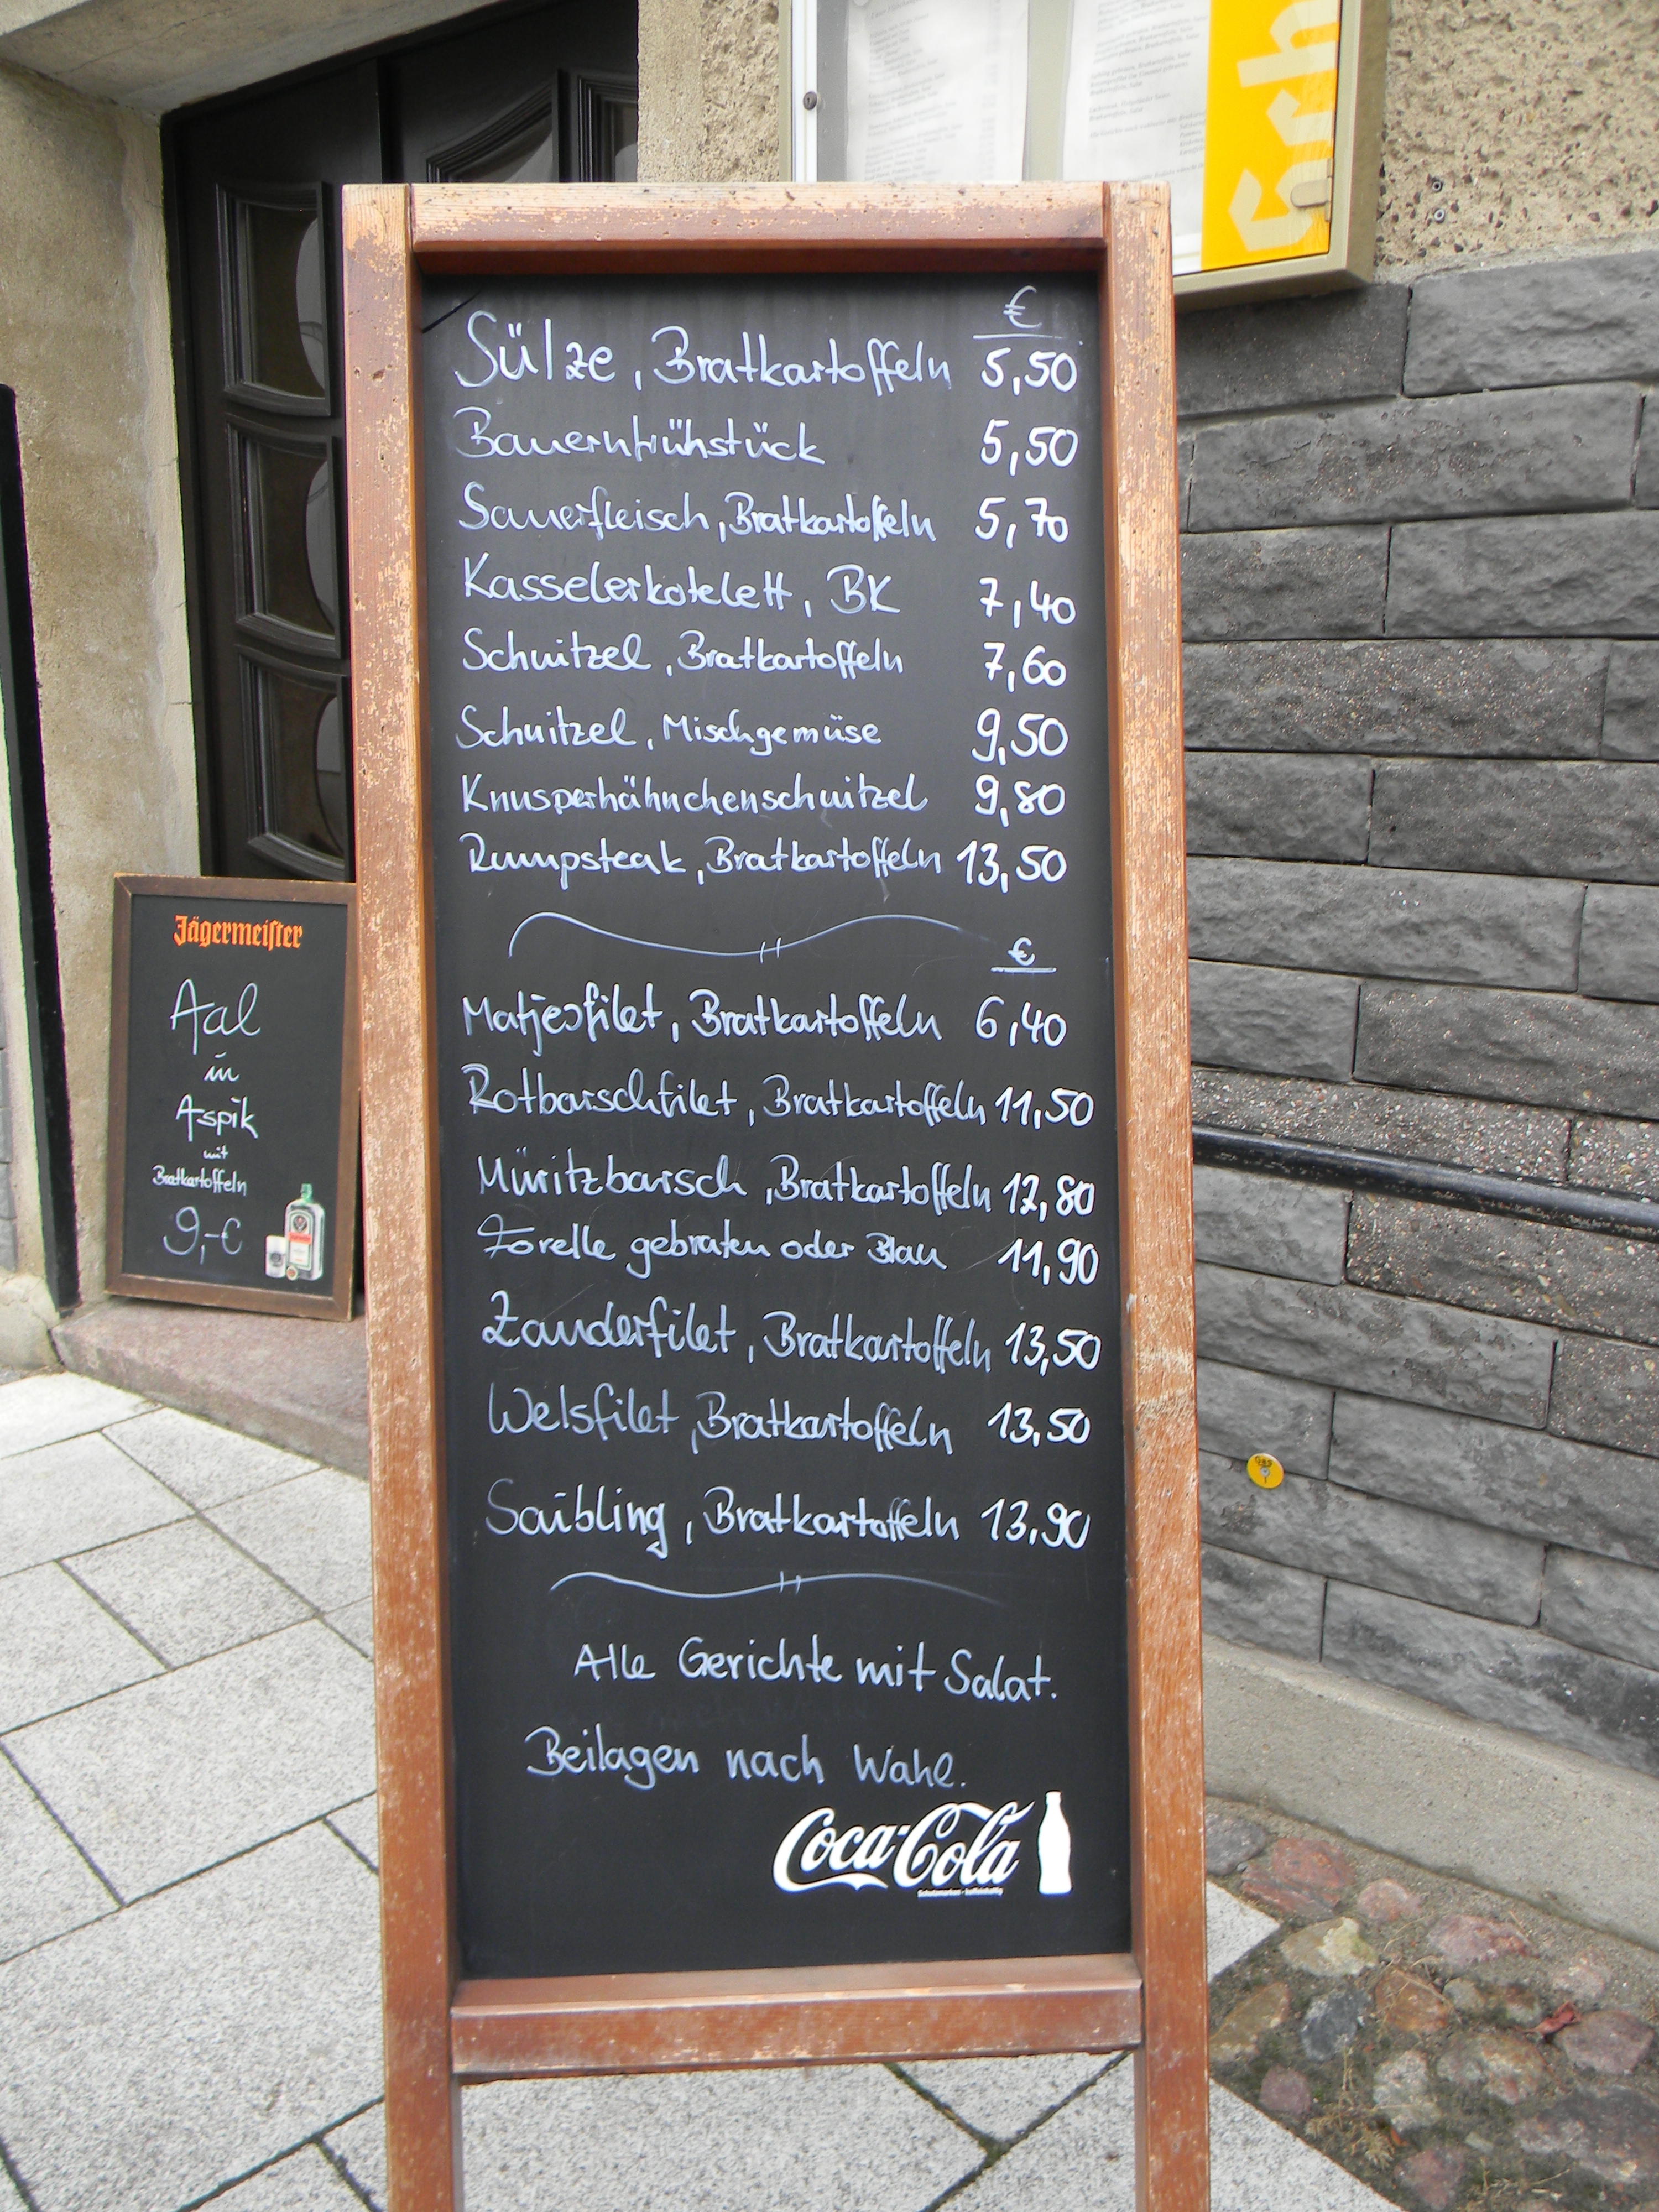 €
Sülze, Bratkartoffeln 5,50
Bauernfrühstück 5,50
Sauerfleisch, Bratkartoffeln 5,70
Kasselerkotelett, BK 7,40
Schnitzel, Bratkartoffeln 7,60
Schnitzel, Mischgemüse 9,50
Knusperhähnchenschnitzel 9,80
Rumpsteak, Bratkartoffeln 13,50
€
Matjesfilet, Bratkartoffeln 6,40
Rotbarschfilet, Bratkartoffeln 11,50
Müritzbarsch, Bratkartoffeln 12,80
Forelle gebraten oder Blau 11,90
Zanderfilet, Bratkartoffeln 13,50
Welsfilet, Bratkartoffeln 13,50
Saibling, Bratkartoffeln 13,90
Alle Gerichte mit Salat.
Beilagen nach Wahl.
Coca-Cola
Jägermeister
Aal
in
Aspik
mit
Bratkartoffeln
9,-€
Sch
GAS